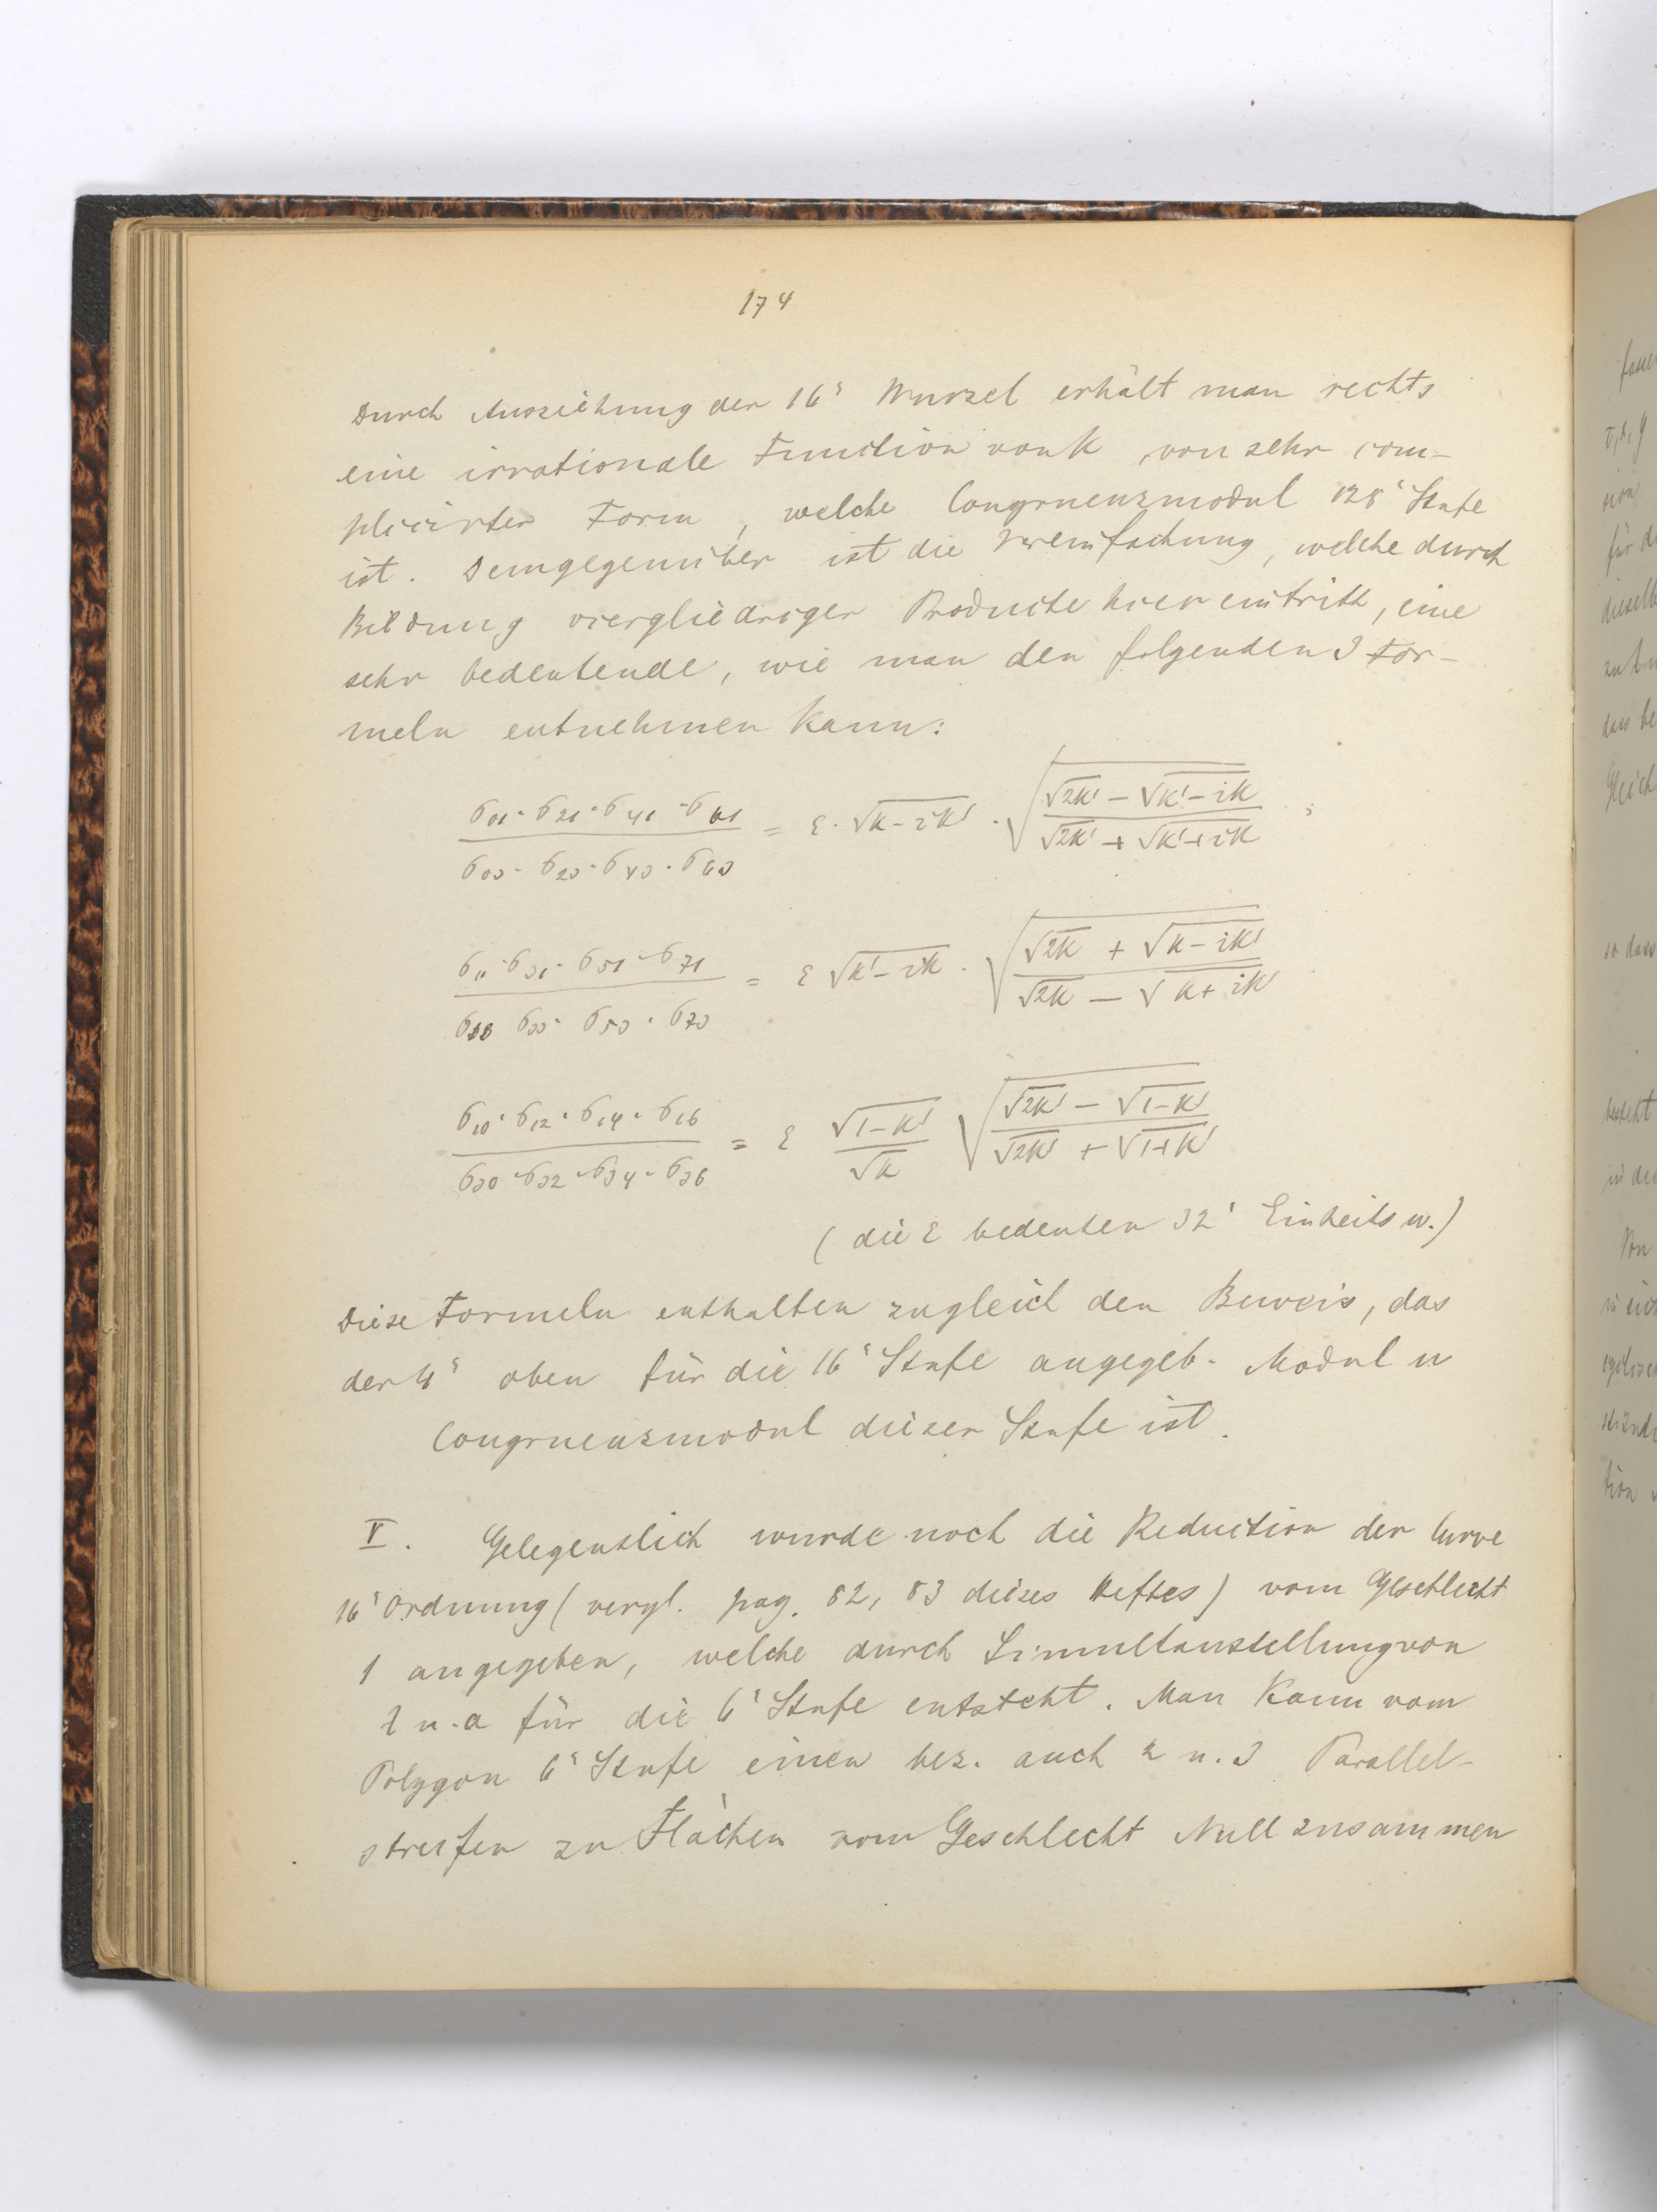 174
Durch Ausziehung der 16ͭ Wurzel erhält man rechts
eine irrationale Function von k von sehr com-
plicirter Form, welche Congruenzmodul 128ͭ Stufe
ist. Demgegenüber ist die Vereinfachung, welche durch
Bildung viergliedriger Producte hier eintritt, eine
sehr bedeutende, wie man den folgenden 3 For-
meln entnehmen kann:
σ₀₁·σ₂₁·σ₄₁·σ₆₁ / σ₀₃·σ₂₃·σ₄₃·σ₆₃ = ε·√(k-ik')·√((√2k' - √(k'-ik)) / (√2k' + √(k'+ik))) ;
σ₁₁·σ₃₁·σ₅₁·σ₇₁ / σ₁₃ σ₃₃·σ₅₃·σ₇₃ = ε √(k'-ik)·√((√2k + √(k-ik')) / (√2k - √(k+ik')))
σ₁₀·σ₁₂·σ₁₄·σ₁₆ / σ₃₀·σ₃₂·σ₃₄·σ₃₆ = ε √(1-k') / √k √((√2k' - √(1-k')) / (√2k' + √(1+k')))
(die ε bedeuten 32ͭ Einheitsw.)
Diese Formeln enthalten zugleich den Beweis, das
der oben für die 16ͭ Stufe angegeb. Modul u
Congruenzmodul dieser Stufe ist.
V. Gelegentlich wurde noch die Reduction der Curve
16ͭ Ordnung (vergl. pag. 82, 83 dieses Heftes) vom Geschlecht
1 angegeben, welche durch Simultanstellung von
u. a für die 6ͭ Stufe entsteht. Man kann vom
Polygon 6ͭ Stufe einen bez. auch 2 u. 3 Parallel-
streifen zu Flächen vom Geschlecht Null zusammen